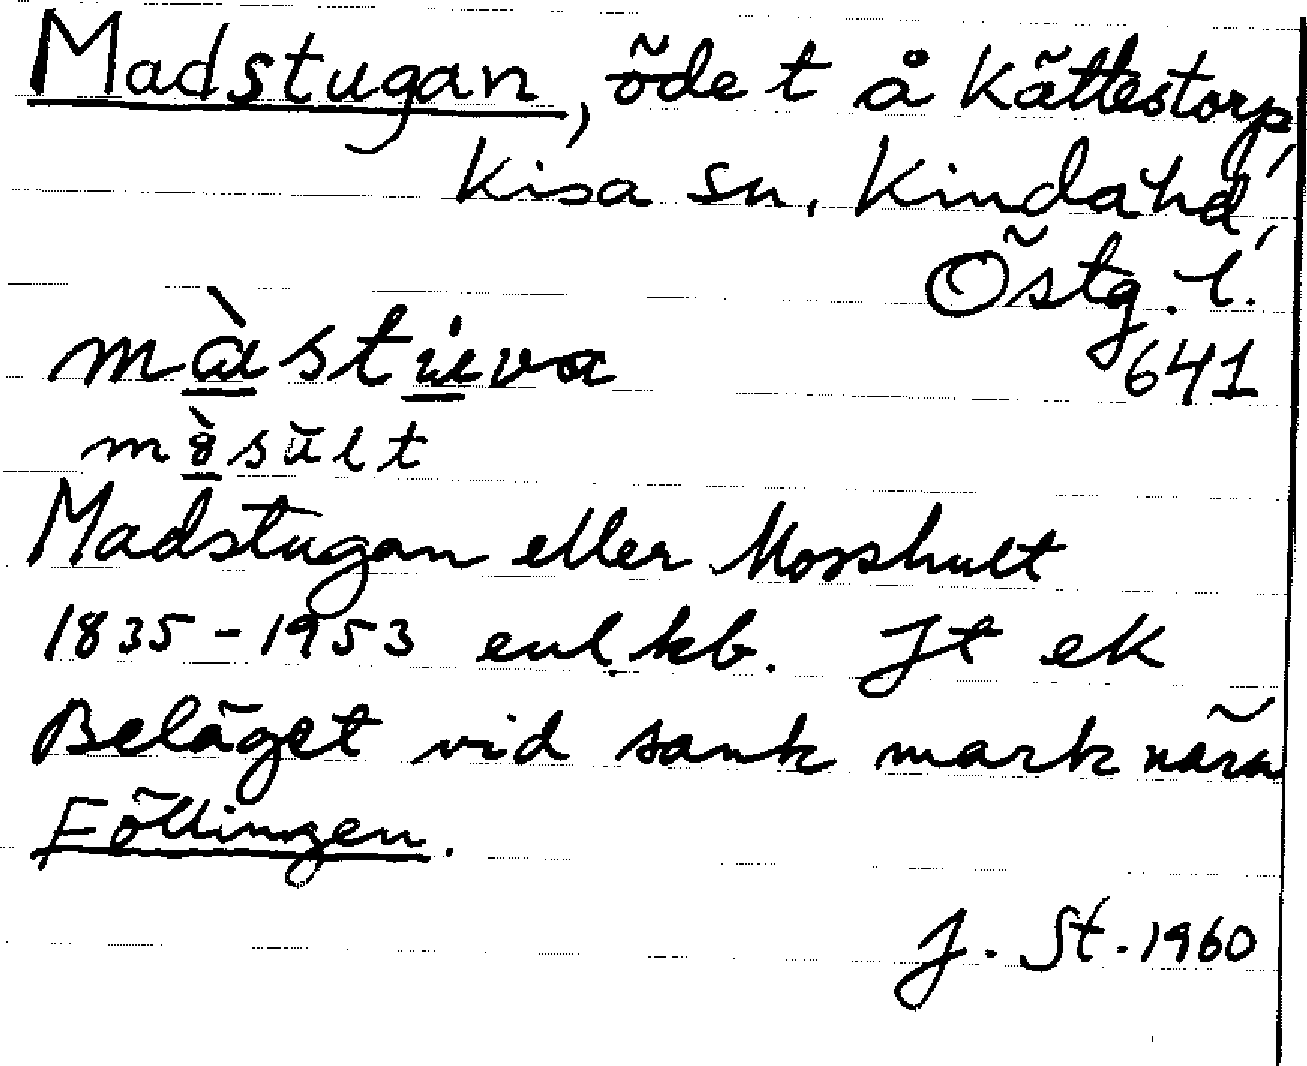 Madstugan, öde t å Kättestorp,
Kisa sn, Kinda hd,
Östg. l.
màstuva 641
mòsúlt
Madstugan eller Mosshult
1835-1953 enl. kb. Jt ek
Beläget vid sank mark nära
Föllingen.
J. St. 1960